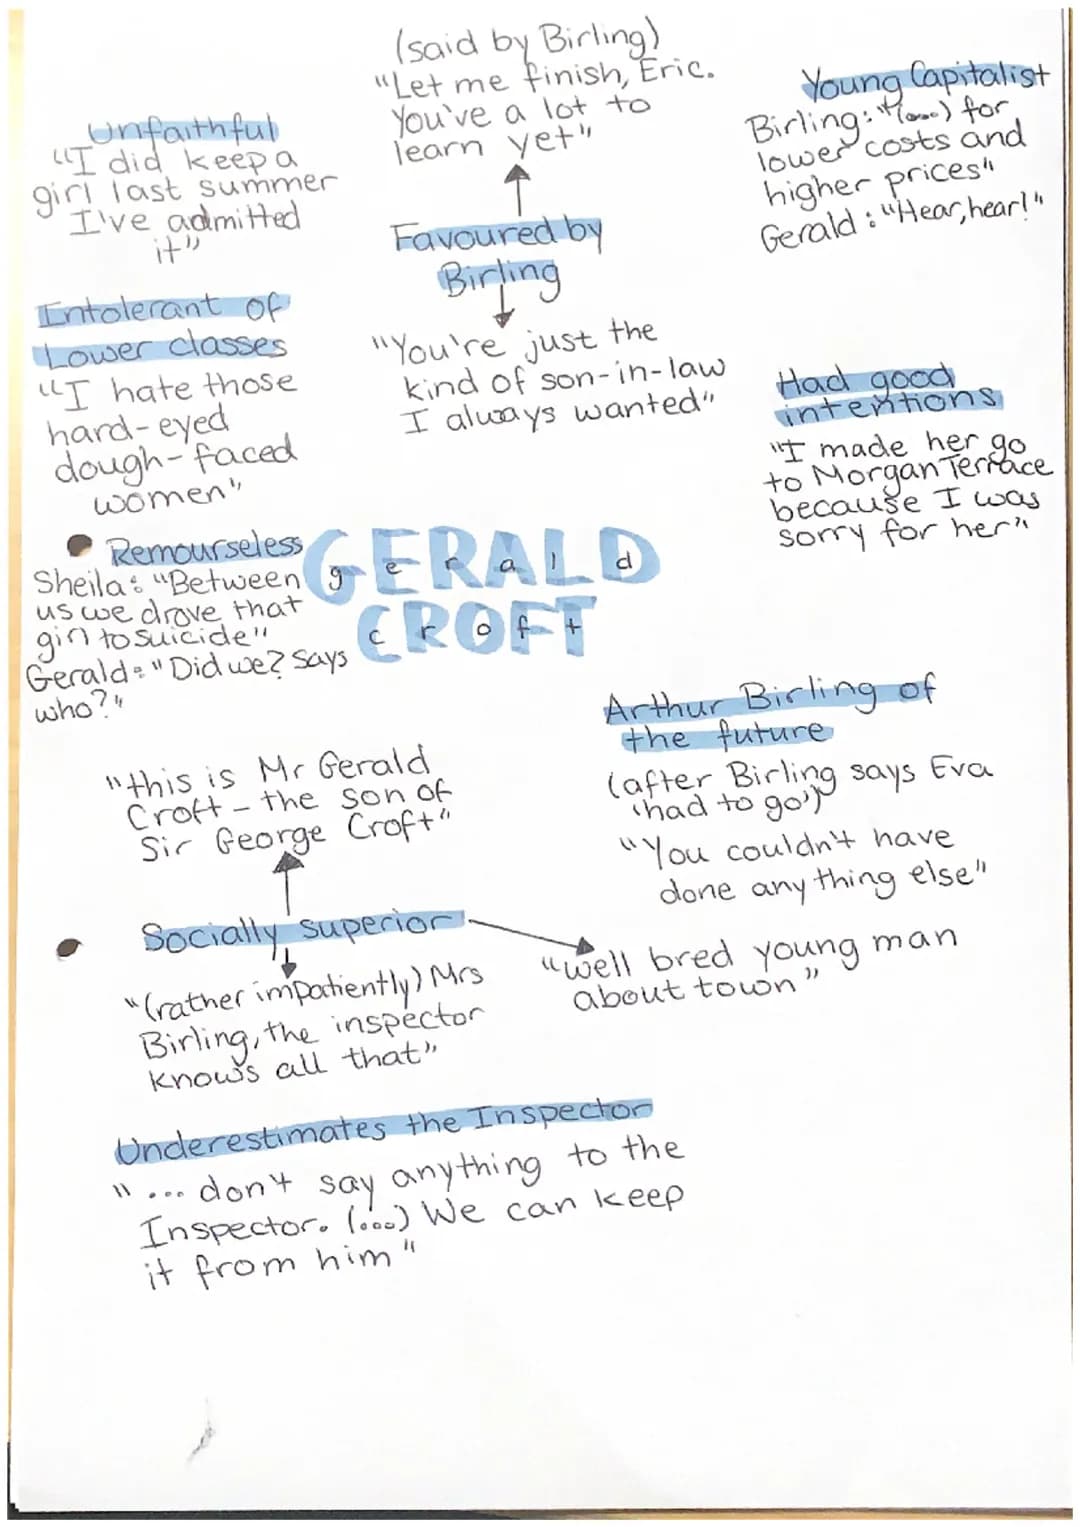 (said by Birling)
"Let me finish, Eric.
You've a lot to
learn yet"
Favoured by
Birling
"You're just the
kind of son-in-law
I always wanted"
Young Capitalist
Birling: "(...) for
lower costs and
higher prices"
Gerald: "Hear, hear!"
Unfaithful
"I did keep a
girl last summer
I've admitted
it"
Intolerant of
Lower classes
"I hate those
hard-eyed
dough-faced
women"
Had good
intentions
"I made her go
to Morgan Terrace
because I was
sorry for her"
Remourseless
Sheila: "Between
us we drove that
girl to suicide"
Gerald: "Did we? Says
who?"
GERALD
gerald
CROFT
croft
Arthur Birling of
the future
(after Birling says Eva
'had to go')
"You couldn't have
done anything else"
"this is Mr Gerald
Croft - the son of
Sir George Croft"
Socially superior
"(rather impatiently) Mrs
Birling, the inspector
knows all that"
"well bred young man
about town"
Underestimates the Inspector
"... don't say anything to the
Inspector. (...) We can keep
it from him"